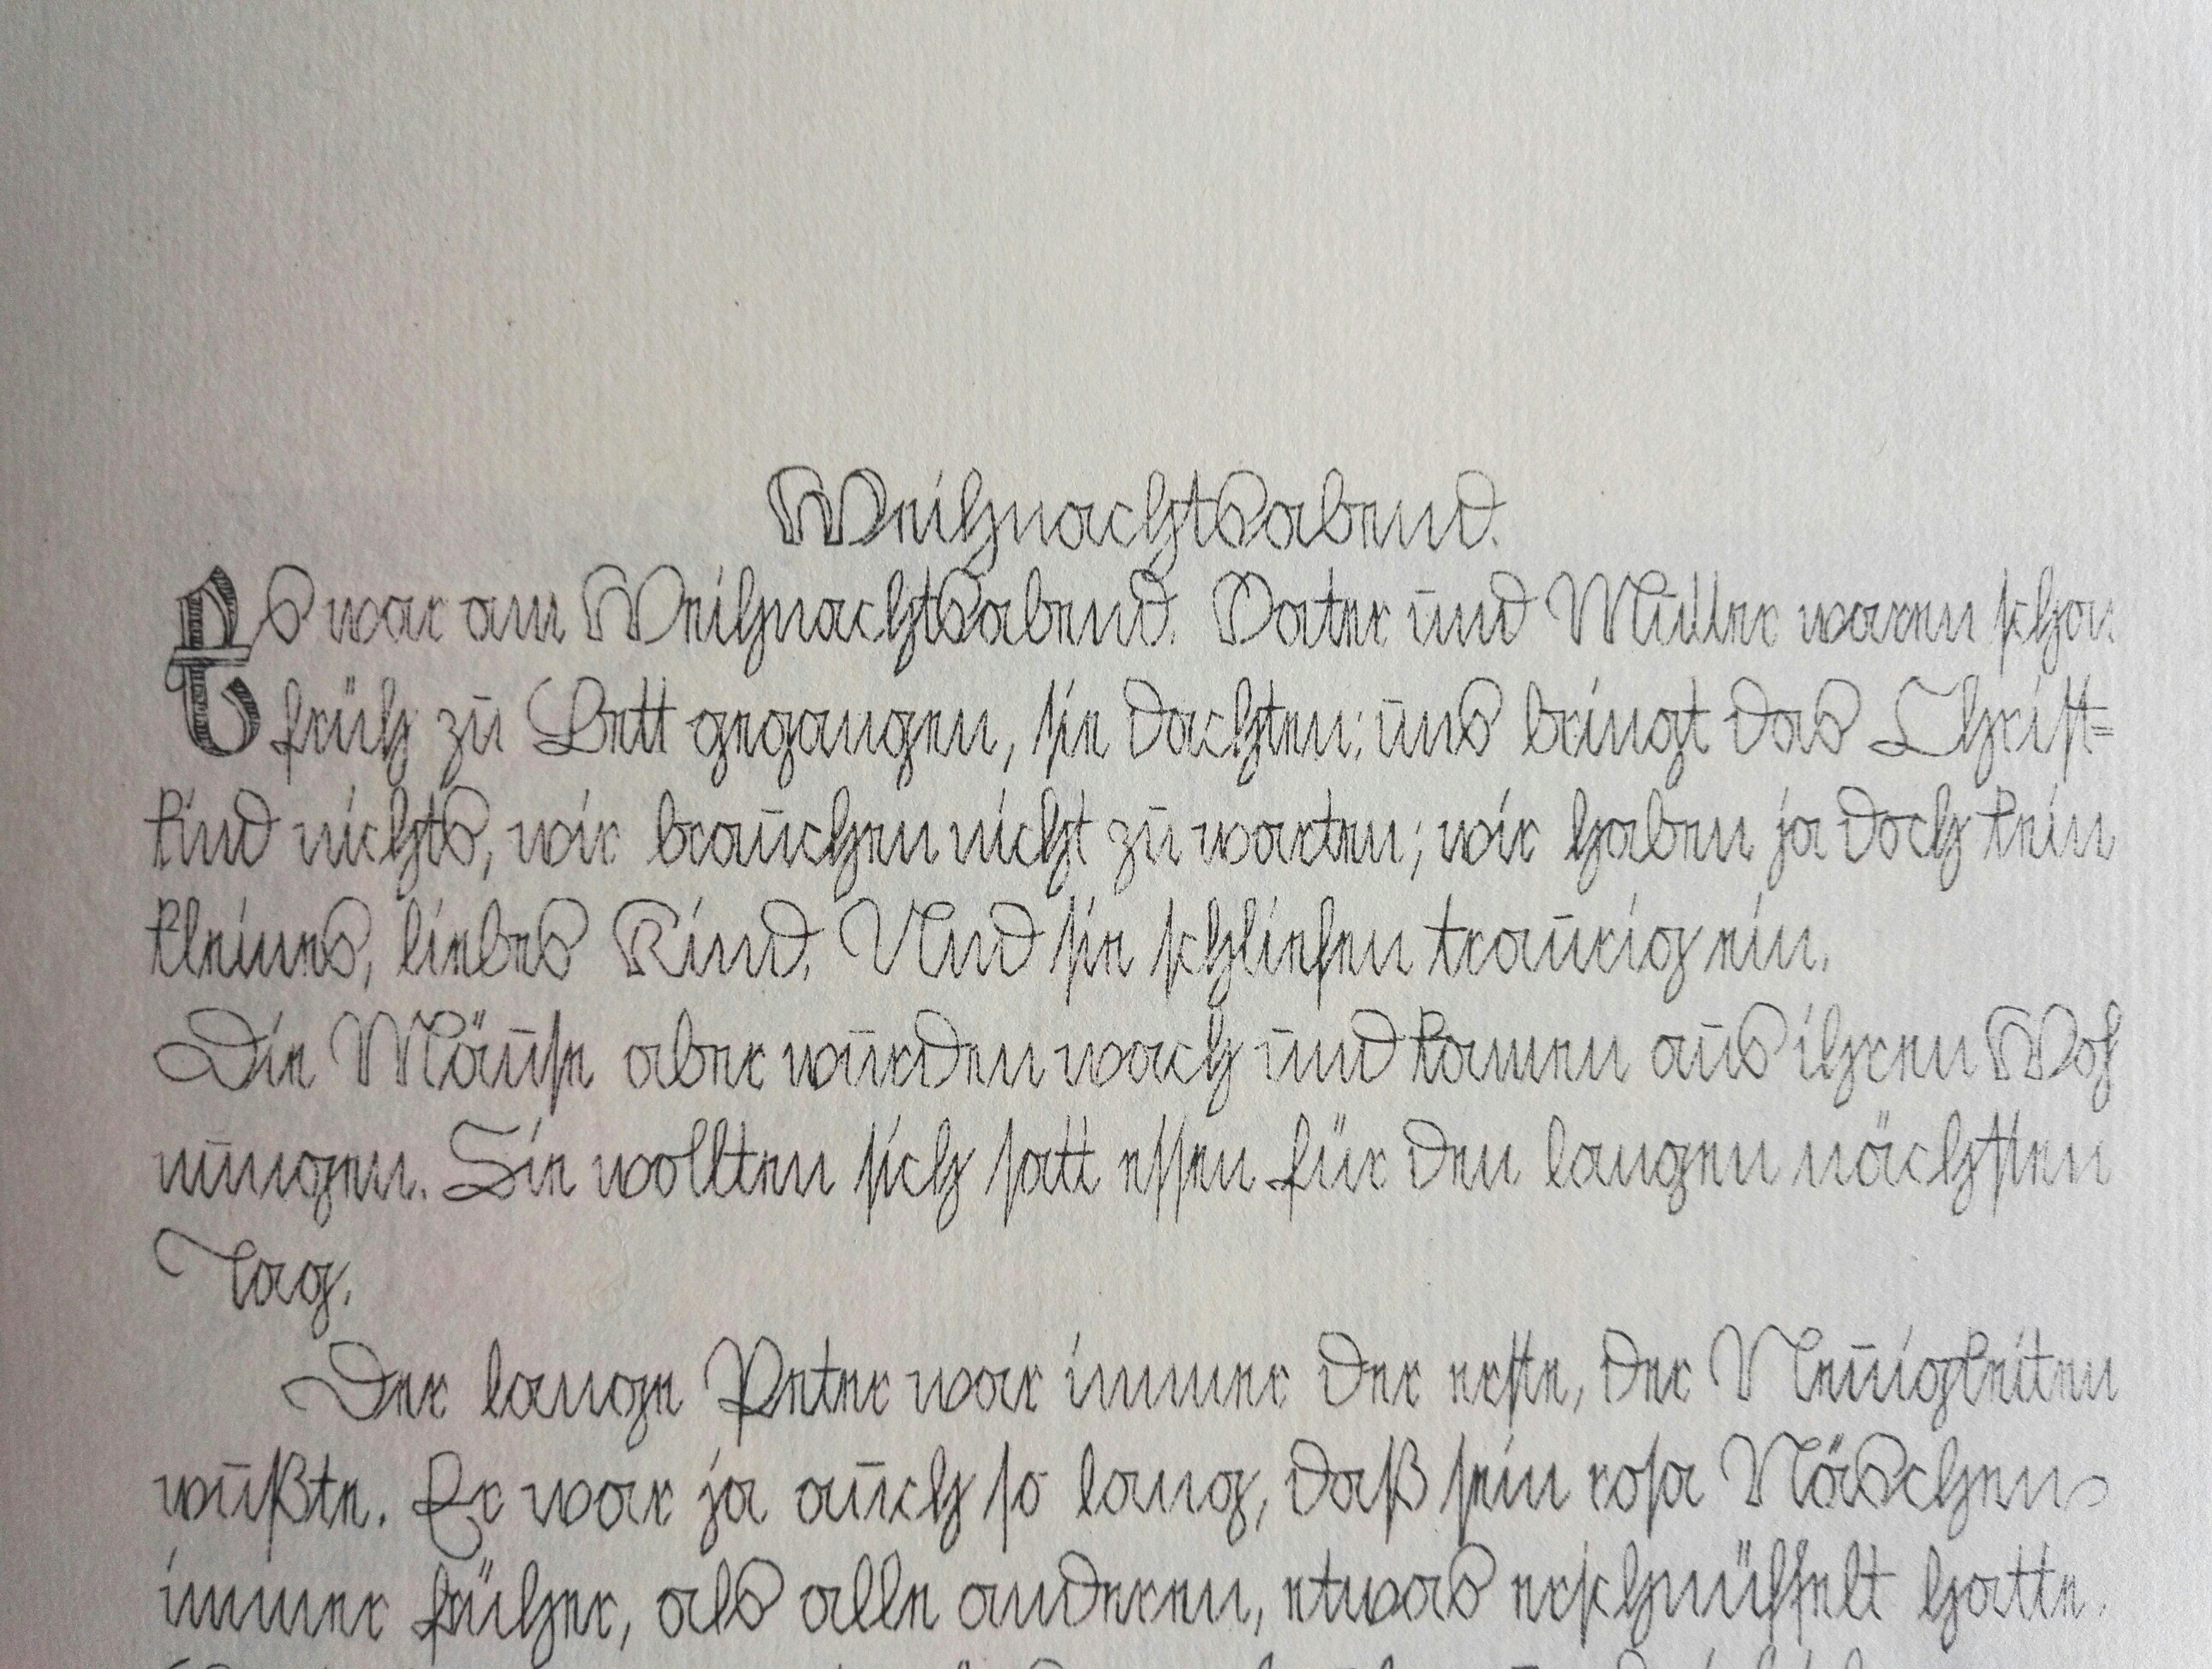 Weihnachtsabend.
Es war am Weihnachtsabend. Vater und Mutter waren schon
früh zu Bett gegangen, sie dachten: uns bringt das Christ=
kind nichts, wir brauchen nicht zu warten; wir haben ja doch kein
kleines, liebes Kind. Und sie schliefen traurig ein.
Die Mäuse aber wurden wach und kamen aus ihren Woh
nungen. Sie wollten sich satt essen für den langen nächsten
Tag.
Der lange Peter war immer der erste, der Neuigkeiten
wußte. Er war ja auch so lang, daß sein rosa Näschen
immer früher, als alle anderen, etwas erschnüffelt hatte.